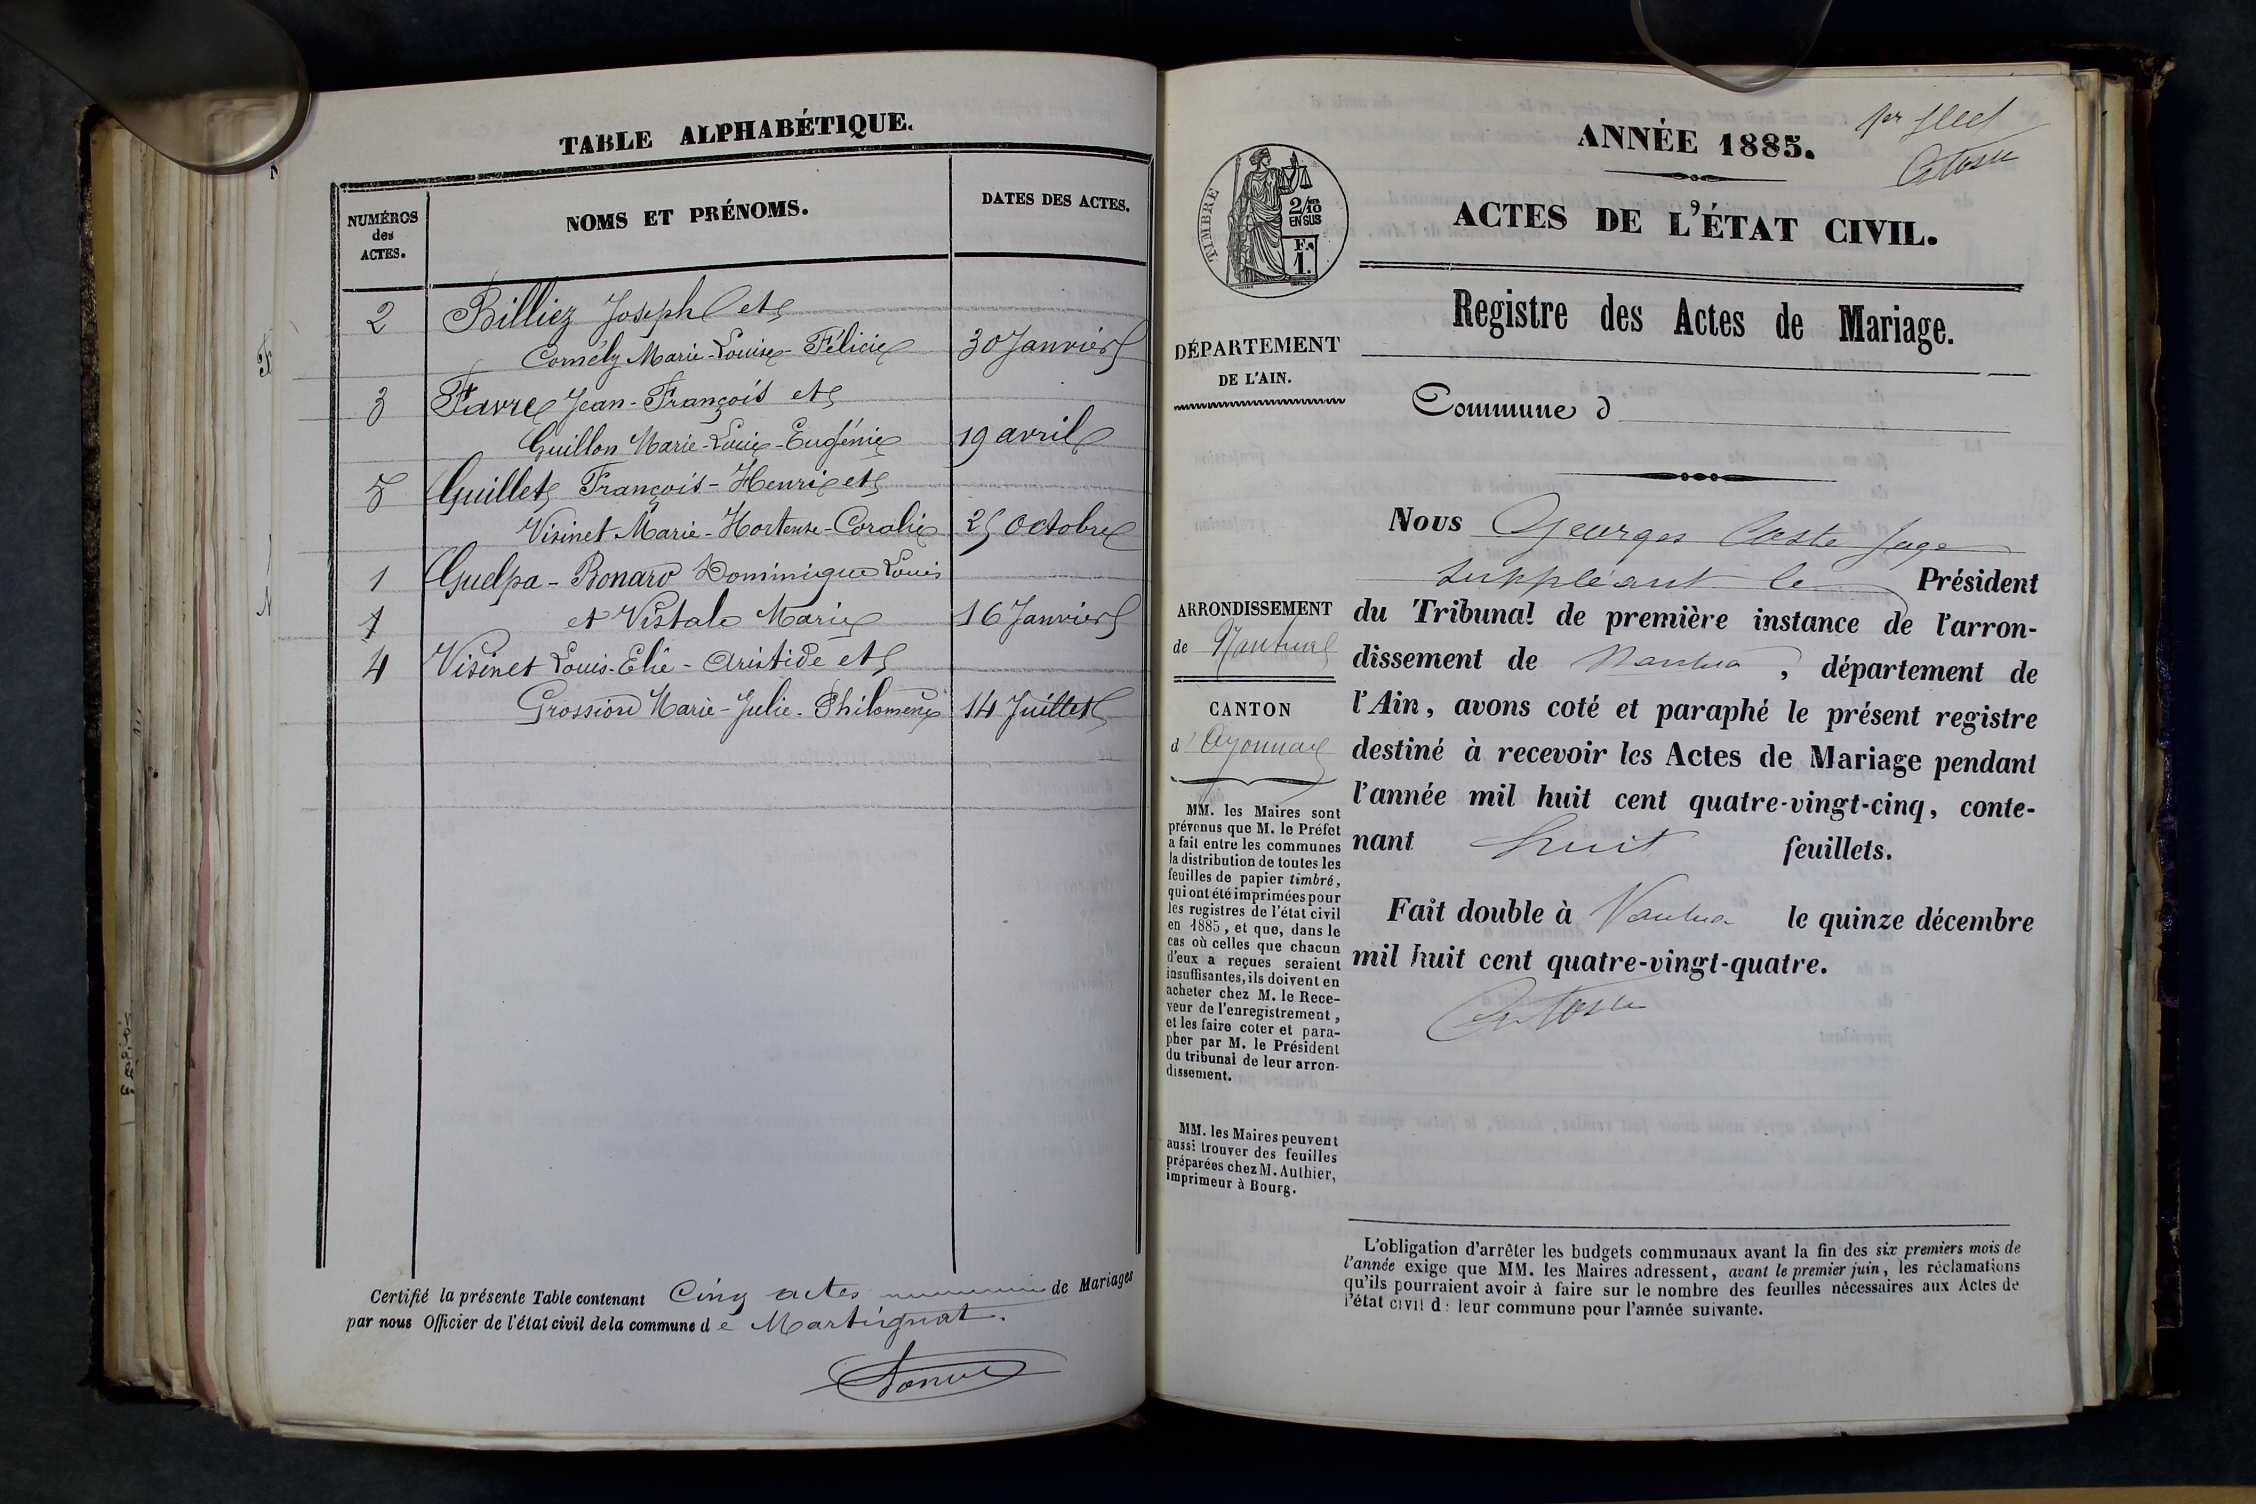 TABLE ALPHABÉTIQUE.
NUMÉROS
des
ACTES.
NOMS ET PRÉNOMS.
DATES DES ACTES.
2 Billiez Joseph et
Cornély Marie-Louise-Félicie 30 Janvier
3 Favre Jean-François et
Guillon Marie-Louise-Eugénie 19 avril
5 Guillet François-Henri et
Visinet Marie-Hortense-Coralie 25 Octobre
1 Guelpa-Bonaro Dominique Louis
1 et Vistalo Marie 16 Janvier
4 Visinet Louis-Elie-Aristide et
Grossiord Marie-Julie-Philomène 14 Juillet
Certifié la présente Table contenant Cinq actes de Mariages
par nous Officier de l'état civil de la commune de Martignat.
1er feuillet
ANNÉE 1885.
TIMBRE
2/10
EN SUS
F.
1.
ACTES DE L'ÉTAT CIVIL.
Registre des Actes de Mariage.
DÉPARTEMENT
DE L'AIN.
Commune d
ARRONDISSEMENT
de Nantua
CANTON
d'Oyonnax
MM. les Maires sont
prévenus que M. le Préfet
a fait entre les communes
la distribution de toutes les
feuilles de papier timbré,
qui ont été imprimées pour
les registres de l'état civil
en 1885, et que, dans le
cas où celles que chacun
d'eux a reçues seraient
insuffisantes, ils doivent en
acheter chez M. le Rece-
veur de l'enregistrement,
et les faire coter et para-
pher par M. le Président
du tribunal de leur arron-
dissement.
MM. les Maires peuvent
aussi trouver des feuilles
préparées chez M. Authier,
imprimeur à Bourg.
Nous Georges Coste Juge
suppléant le Président
du Tribunal de première instance de l'arron-
dissement de Nantua, département de
l'Ain, avons coté et paraphé le présent registre
destiné à recevoir les Actes de Mariage pendant
l'année mil huit cent quatre-vingt-cinq, conte-
nant huit feuillets.
Fait double à Nantua le quinze décembre
mil huit cent quatre-vingt-quatre.
L'obligation d'arrêter les budgets communaux avant la fin des six premiers mois de
l'année exige que MM. les Maires adressent, avant le premier juin, les réclamations
qu'ils pourraient avoir à faire sur le nombre des feuilles nécessaires aux Actes de
l'état civil d: leur commune pour l'année suivante.